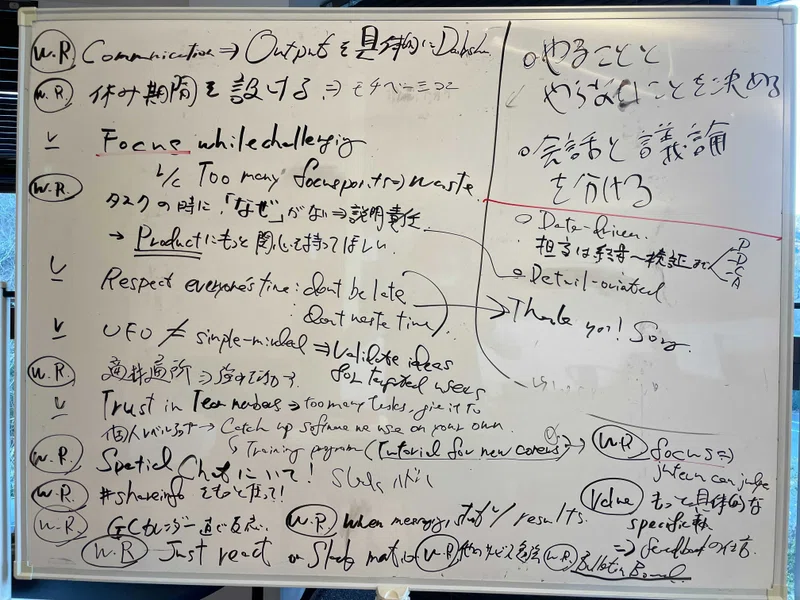 W.R. Communication ⇒ Outputを具体的に
W.R. 休み期間を設ける ⇒ モチベーション
V Focus while challenging
Too many focus points ⇒ waste.
W.R. タスクの時に、「なぜ」がない ⇒ 説明責任
→ Productにもっと関心を持ってほしい.
V Respect everyone's time: dont be late
dont waste time
V UFO ≠ simple-minded ⇒ Validate ideas
for targeted users
W.R. 適材適所 ⇒
V Trust in Team ⇒ too many tasks - give it to
個人レベル → Catch up software we use on your own.
Training program (Tutorial for new comers)
W.R. Spatial Chatにいて!
W.R. #shareinfoをもっと使って!
W.R. GCカレンダー
W.R. When messaging, start w/ results.
W.R. Just react on Slack
W.R.
W.R. Bulletin Board
○やることと
やらないことを決める
○会話と議論
を分ける
○ Data-driven
担当は 検証まで
P
D
C
A
○ Detail-oriented
Thank you! Sorry.
W.R. focus ⇒
intern can judge
Value もっと具体的な
specific
⇒ feedbackの仕方